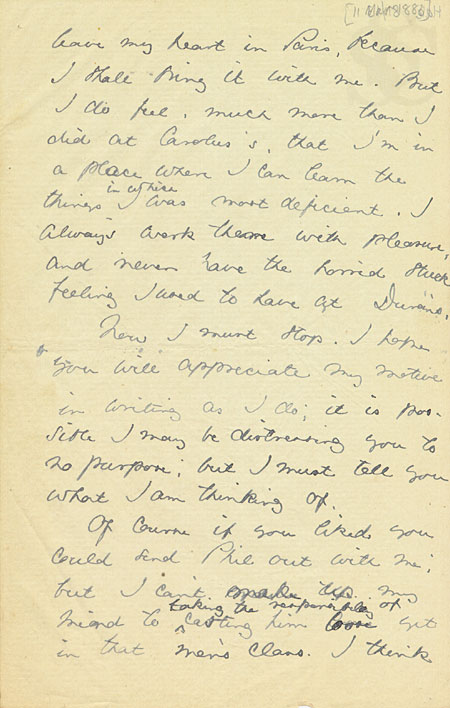 leave my heart in Paris, because
I shall bring it with me. But
I do feel, much more than I
did at Carolus's, that I'm in
a place where I can learn the
in which
things I was most deficient. I
always work there with pleasure,
and never have the horrid stuck
feeling I used to have at Duran's.
Now I must stop. I hope
you will appreciate my motive
in writing as I do; it is pos-
sible I may be distressing you to
no purpose; but I must tell you
what I am thinking of.
Of course if you liked you
could send Phil out with me;
but I can't make up my
taking the responsibility of
mind to casting him loose yet
in that men's class. I think